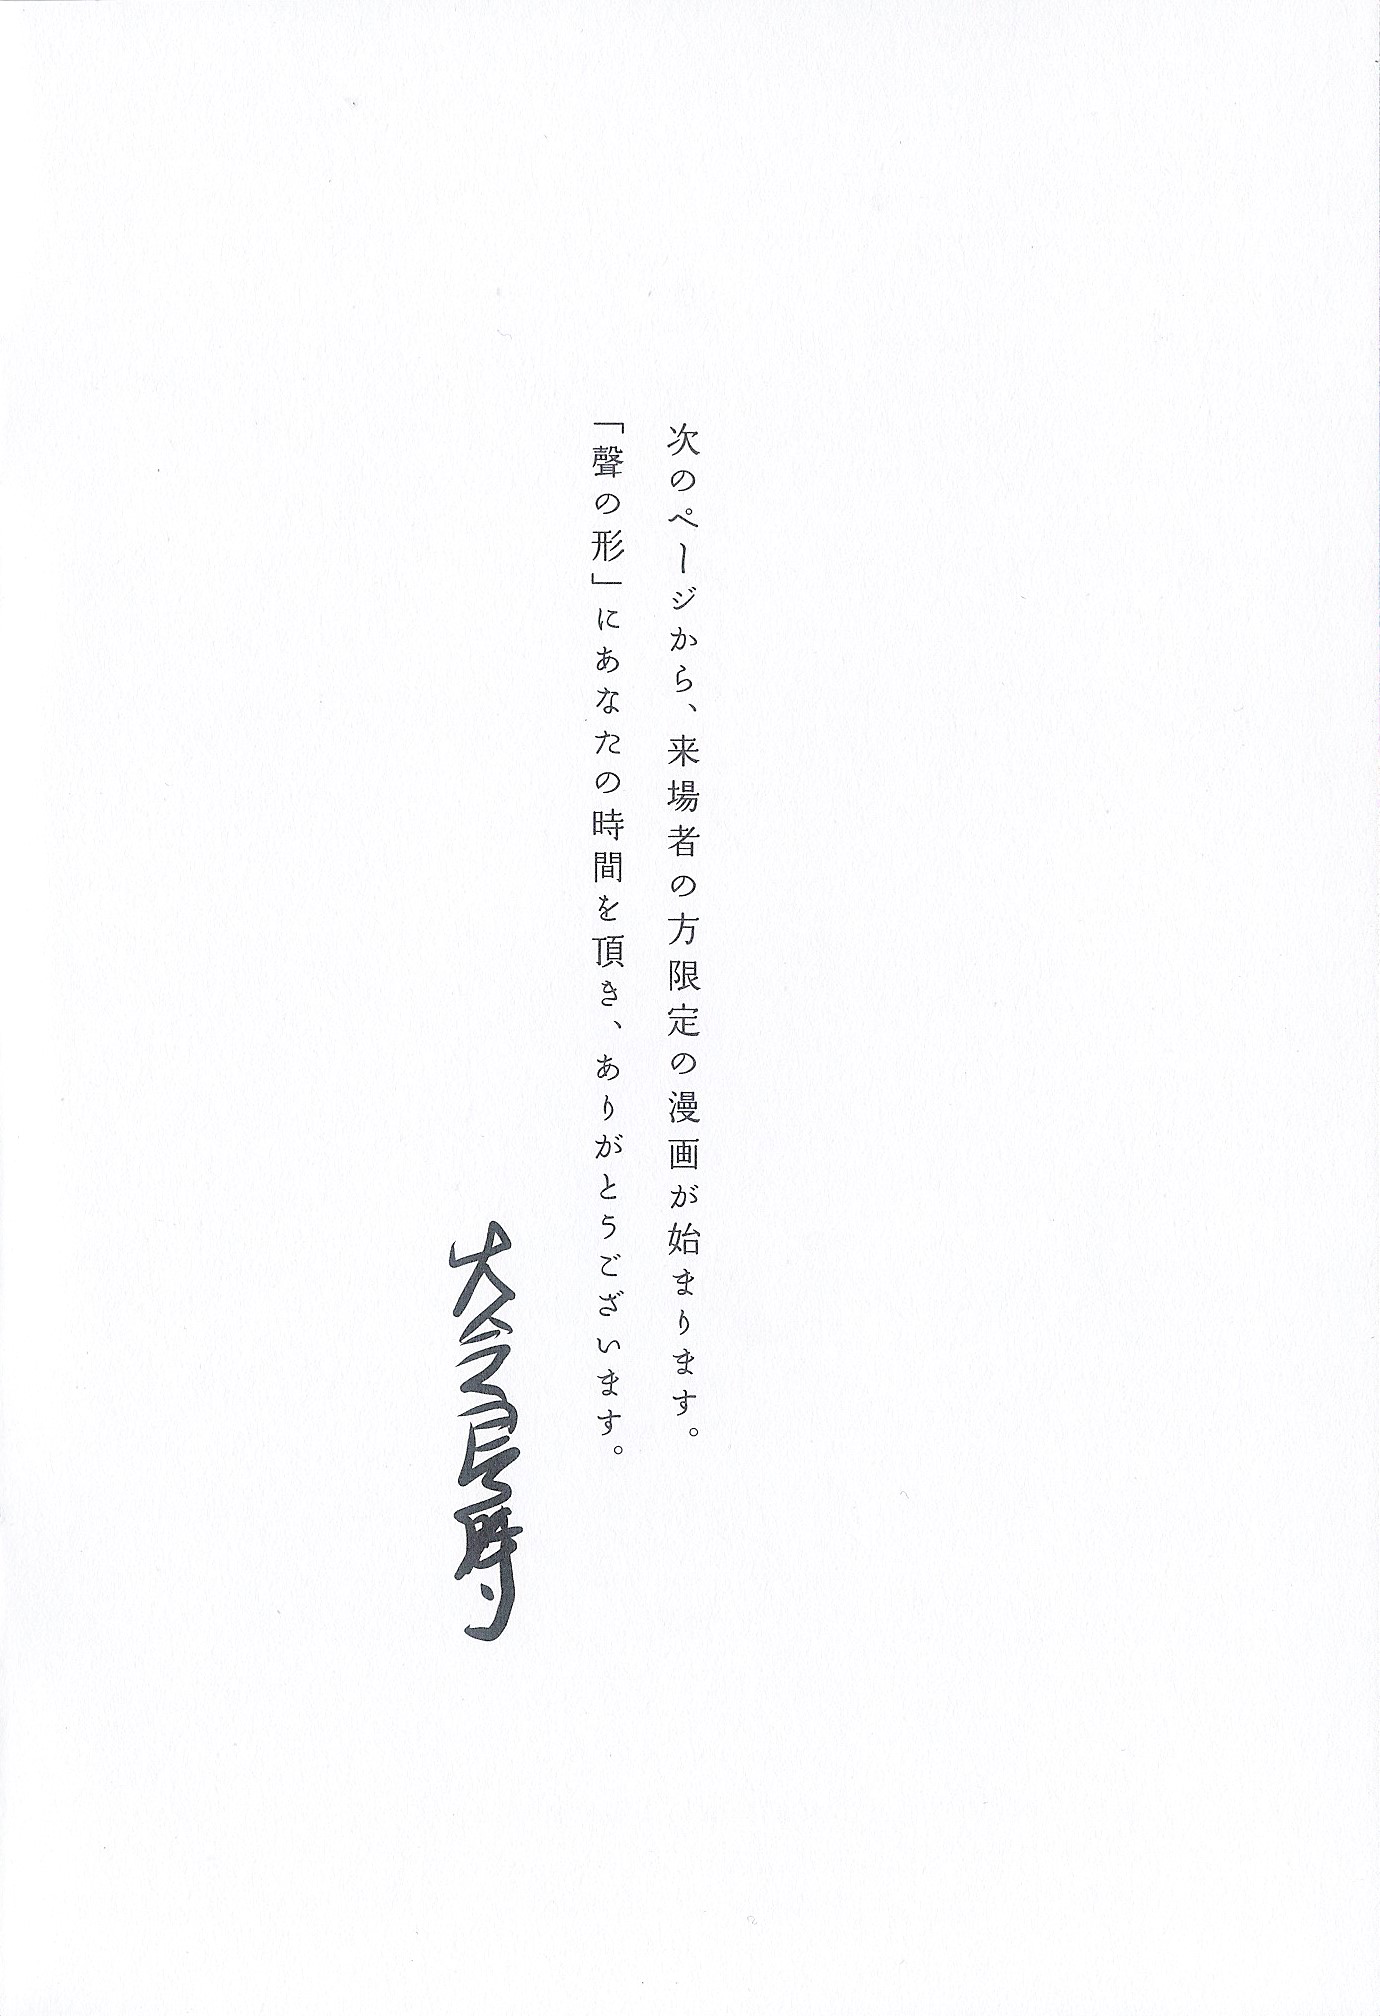 次のページから、来場者の方限定の漫画が始まります。
「聲の形」にあなたの時間を頂き、ありがとうございます。
大今良時